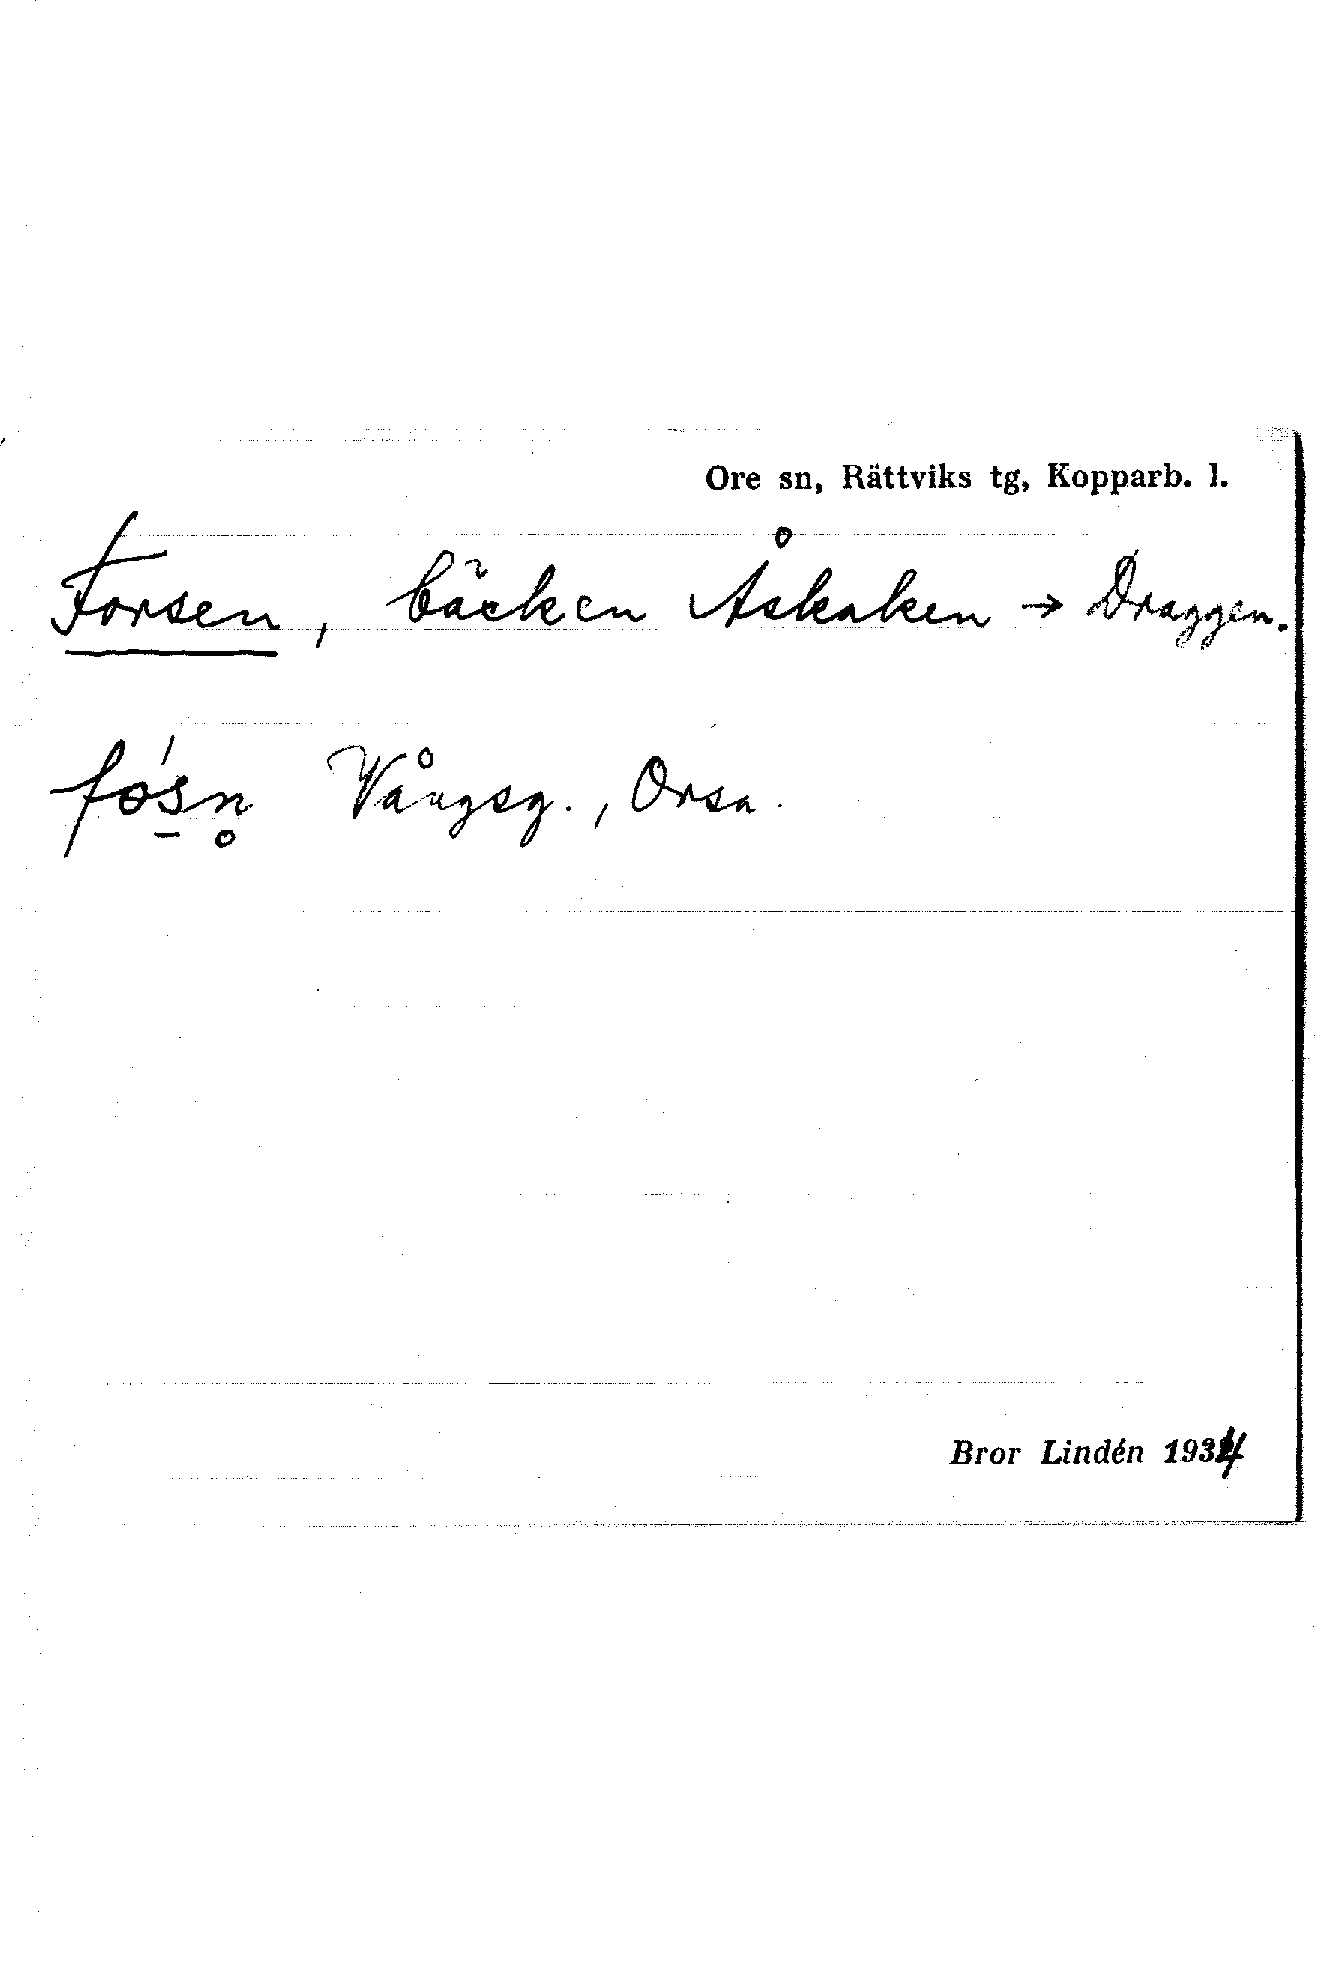 Ore sn, Rättviks tg, Kopparb. l.
Forsen, bäcken Åskaken → Draggen.
fo's̠n̥ Vångsg., Orsa.
Bror Lindén 1934